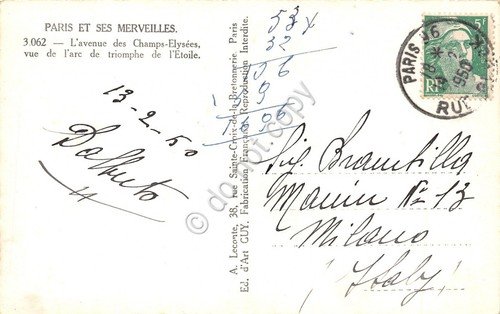 PARIS ET SES MERVEILLES.
3.062 — L'avenue des Champs-Elysées,
vue de l'arc de triomphe de l'Etoile.
13-2-50
A. Leconte, 38, rue Sainte-Croix-de-la-Bretonnerie Paris
Ed. d'Art GUY. Fabrication Française. Reproduction Interdite.
53 x
32
1696
PARIS
RUE
5F
RF
Sig. Brambilla
Manin No 13
Milano
(Italy)